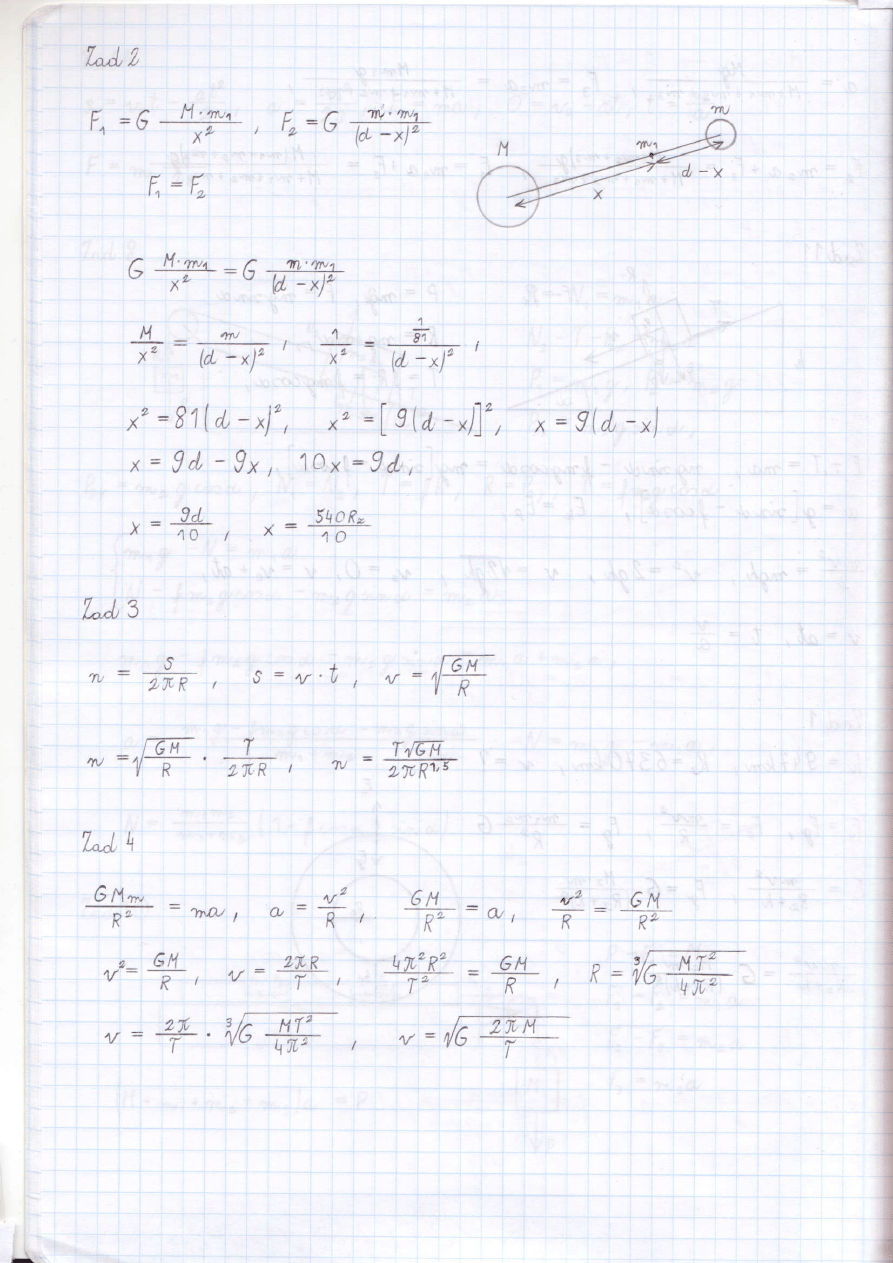 Zad 2
F₁ = G M·m₁/x² , F₂ = G m·m₁/(d − x)²
F₁ = F₂
M
m₁
m
x
d − x
G M·m₁/x² = G m·m₁/(d − x)²
M/x² = m/(d − x)² , 1/x² = (1/81)/(d − x)² ,
x² = 81(d − x)², x² = [9(d − x)]², x = 9(d − x)
x = 9d − 9x, 10x = 9d,
x = 9d/10 , x = 540R_z/10
Zad 3
n = s/2πR , s = v · t , v = √(GM/R)
n = √(GM/R) · T/2πR , n = T√GM/2πR^1,5
Zad 4
GMm/R² = ma , a = v²/R , GM/R² = a , v²/R = GM/R²
v² = GM/R , v = 2πR/T , 4π²R²/T² = GM/R , R = ∛(G MT²/4π²)
v = 2π/T · ∛(G MT²/4π²) , v = √(G 2πM/T)